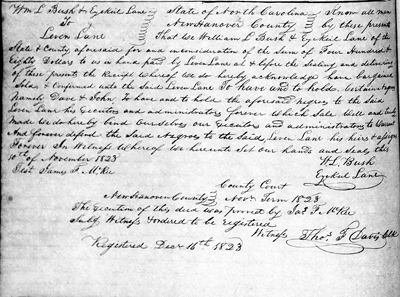 Wm L Bush & Ezekiel Lane } State of North Carolina } Know all men
to New Hanover County } by these presents
Leven Lane } That We William L Bush & Ezekiel Lane of the
State & County aforesaid for and in consideration of the Sum of Four Hundred &
Eighty Dollars to us in hand paid by Leven Lane at & before the Sealing and delivering
of these presents the Receipt Whereof we do hereby acknowledge have bargained
Sold & Confirmed unto the Said Leven Lane To have and to hold Certain Negroes
Namely Dave & John, To have and to hold the aforesaid negros to the Said
Leven Lane his Executors and administrators forever Which Sale Well and truly
Made We do hereby bind Ourselves our Executors and administrators to Warrant
And forever defend the Said Negros to the Said Leven Lane his heirs & assigns
Forever In Witness Whereof We hereunto Set our hands and Seals this
10th of November 1823 W L. Bush
Test James F. McKee Ezekiel Lane
County Court
New Hanover County } Novr Term 1823
The Execution of this deed was proved by Jas F. McKee
Subg Witness & ordered to be Registered
Witness Thos F Davis Clk
Registered Decr 16th 1823